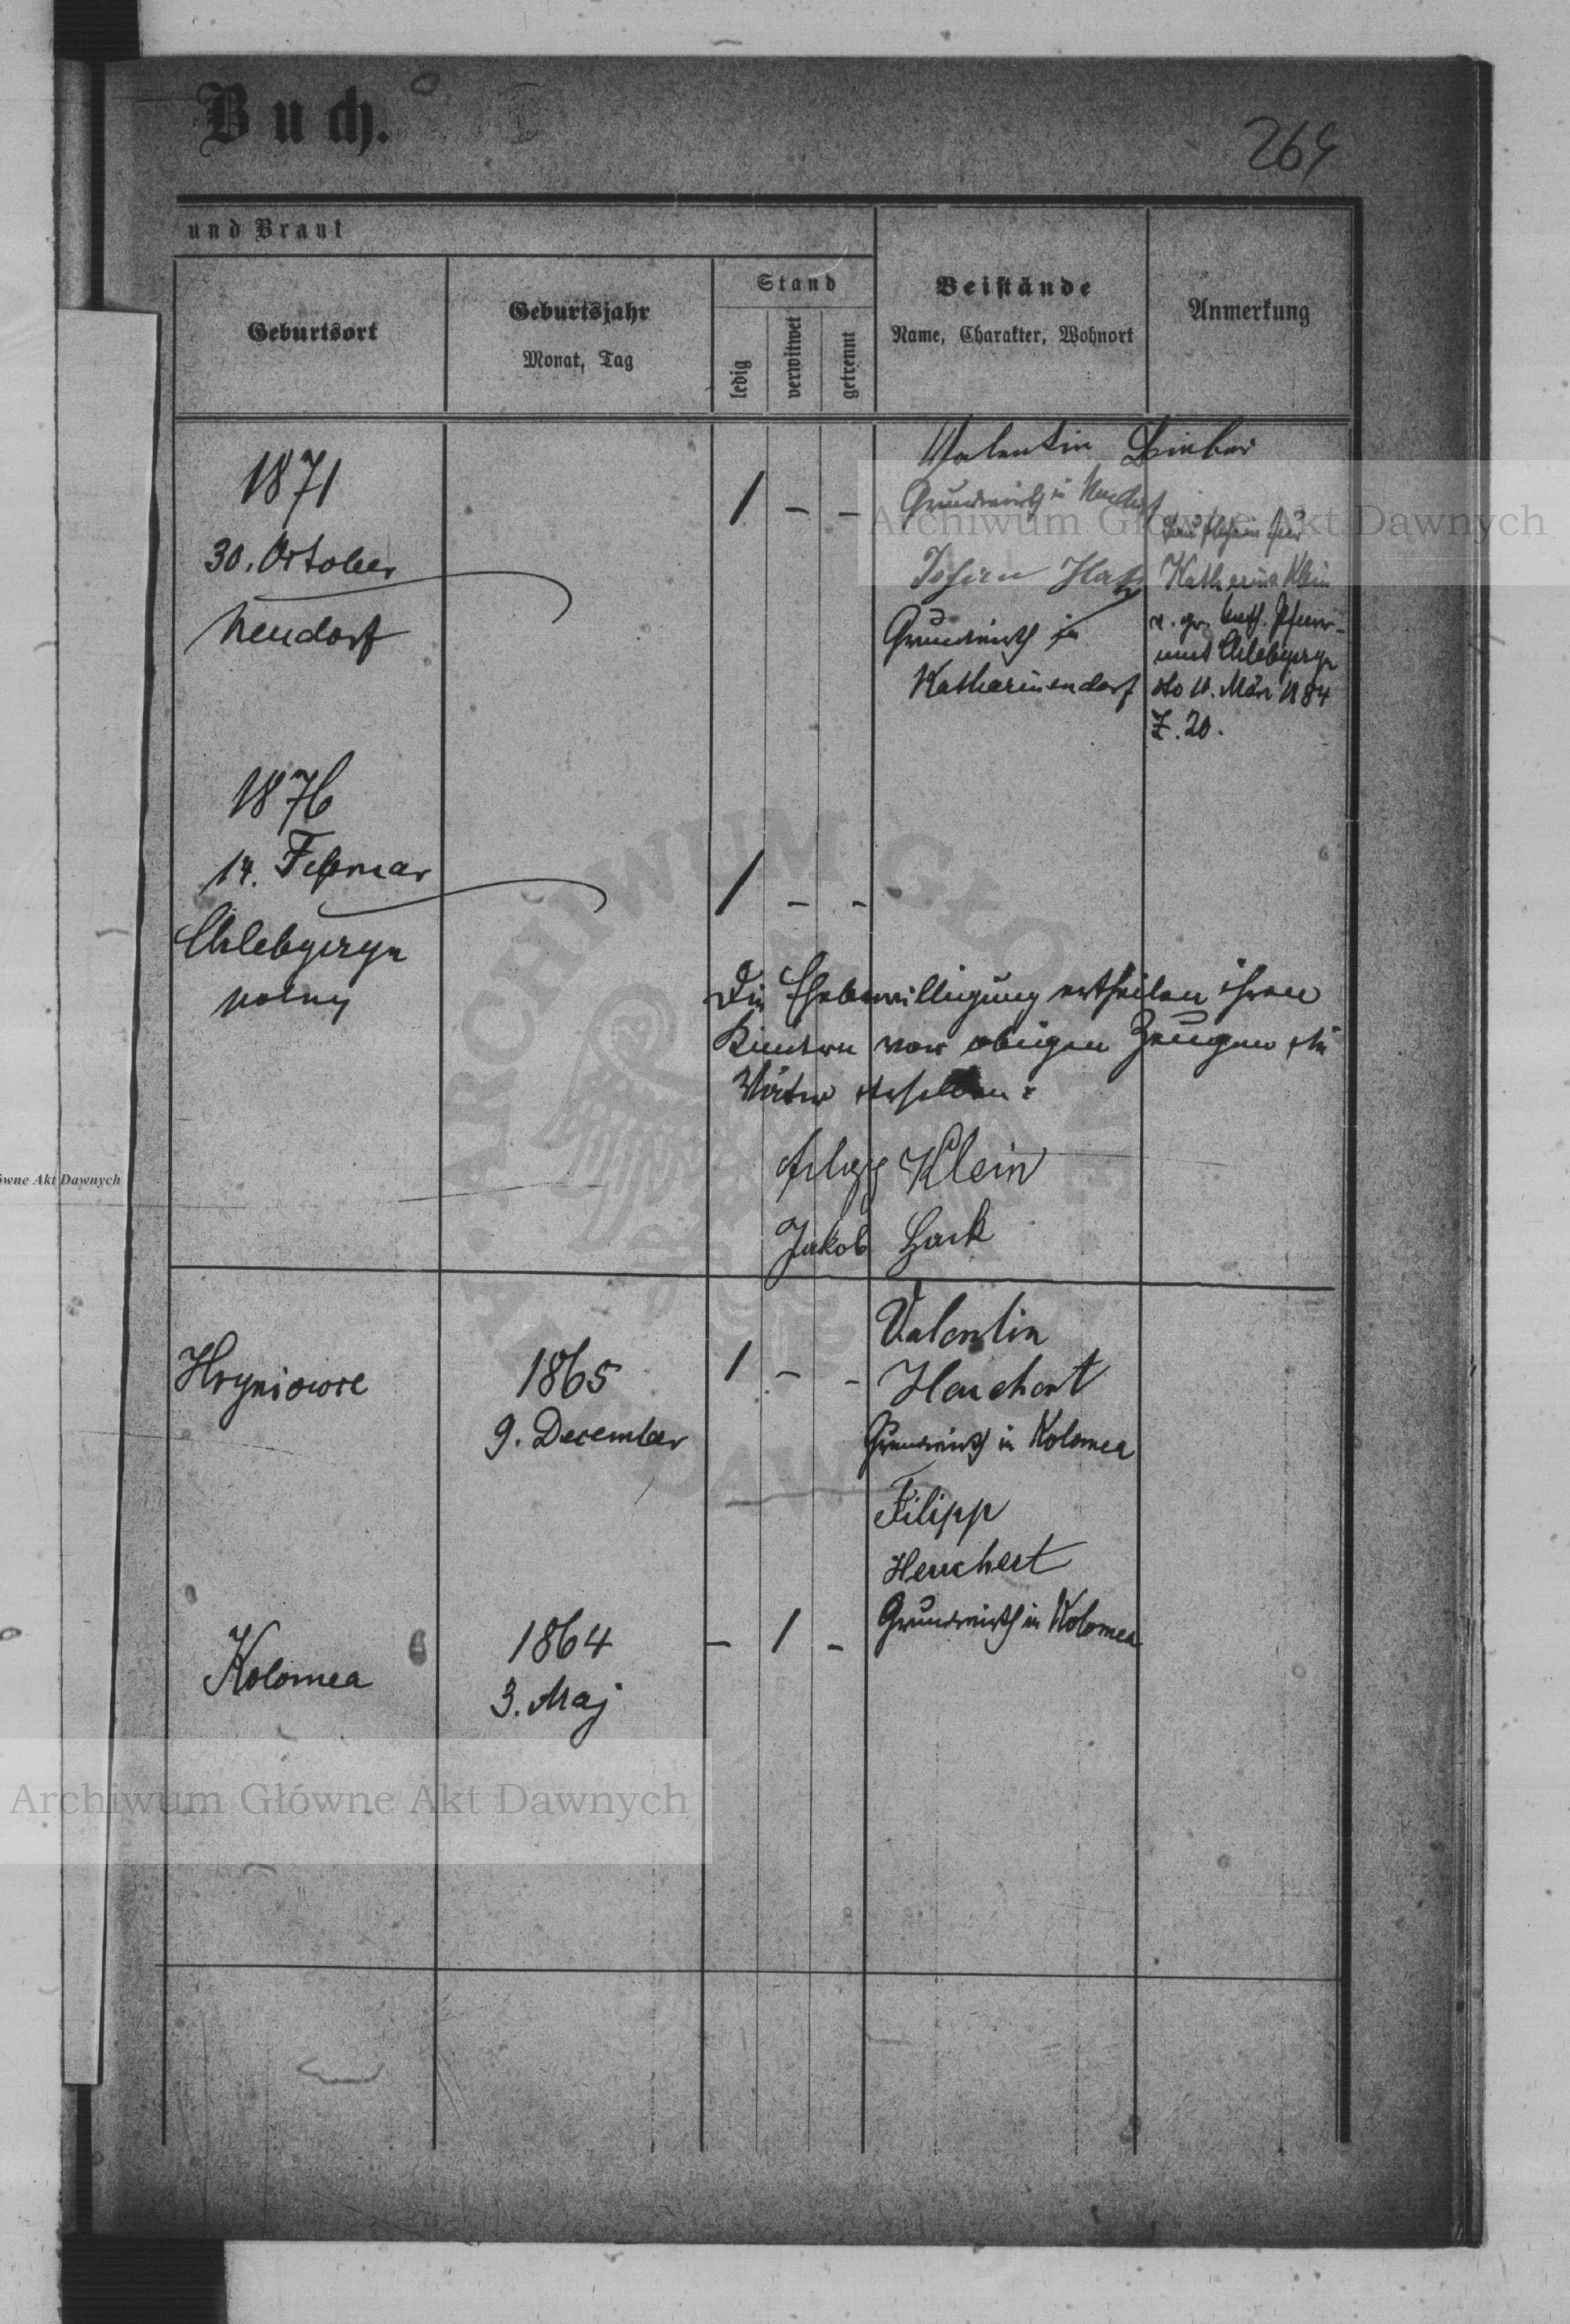 Buch.
264
und Braut
Geburtsort
Geburtsjahr
Monat, Tag
Stand
ledig
verwitwet
getrennt
Beistände
Name, Charakter, Wohnort
Anmerkung
1871
30. October
Neudorf
1 – –
Valentin
Grundwirth in Neudorf
Johann
Grundwirth in
Katharinendorf
für
Katharina Klein
v. gr. kath. Pfarr-
amt Chlebyczyn
dto 11. März 1884
Z. 20.
1876
14. Februar
Chlebyczyn
polny
1 – –
Die Ehebewilligung ertheilen ihren
Kindern vor obigen Zeugen die
Väter derselben:
Filipp Klein
Jakob
Hryniowce
1865
9. December
1 – –
Valentin
Heuchert
Grundwirth in Kolomea
Filipp
Heuchert
Grundwirth in Kolomea
Kolomea
1864
3. Maj
– 1 –
Archiwum Główne Akt Dawnych
Archiwum Główne Akt Dawnych
ówne Akt Dawnych